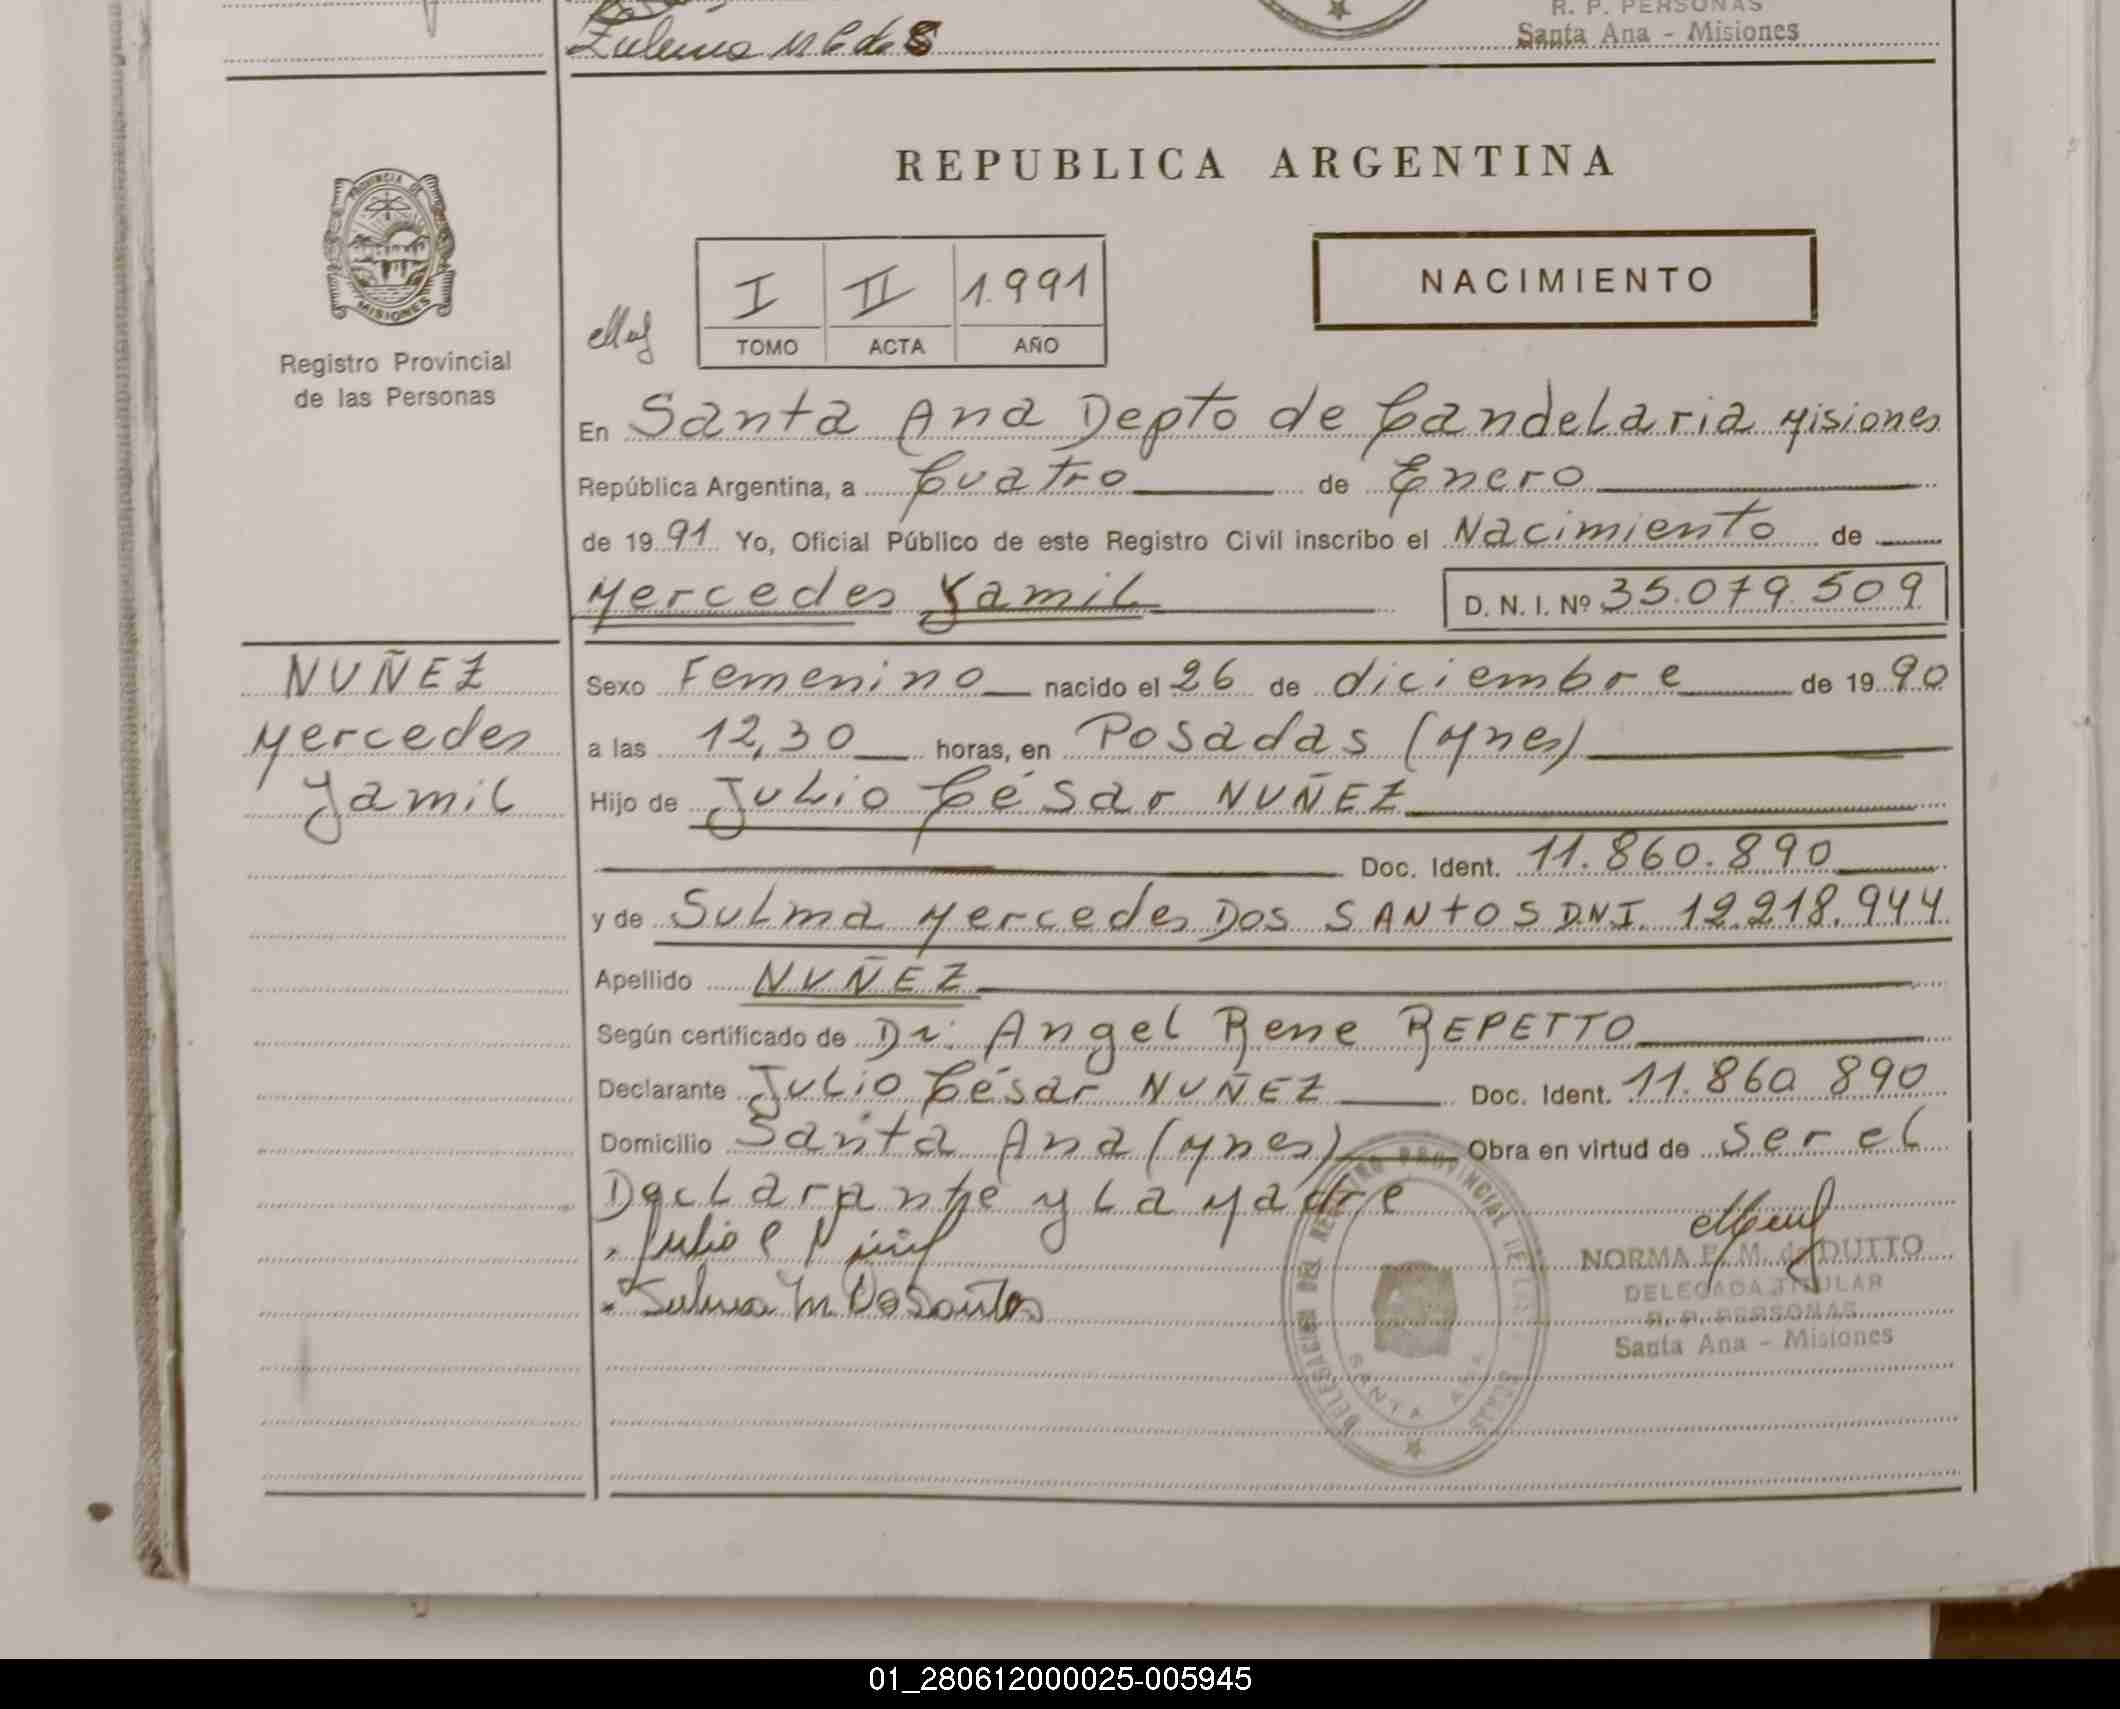 R. P. PERSONAS
Santa Ana - Misiones
REPUBLICA ARGENTINA
PROVINCIA DE
MISIONES
Registro Provincial
de las Personas
I II 1.991
TOMO ACTA AÑO
NACIMIENTO
En Santa Ana Depto de Candelaria Misiones
República Argentina, a Cuatro de Enero
de 1991 Yo, Oficial Público de este Registro Civil inscribo el Nacimiento de
Mercedes Yamil D. N. I. Nº 35.079.509
NUÑEZ
Mercedes
Yamil
Sexo Femenino nacido el 26 de diciembre de 1990
a las 12,30 horas, en Posadas (Mnes)
Hijo de Julio César NUÑEZ
Doc. Ident. 11.860.890
y de Sulma Mercedes DOS SANTOS D.N.I. 12.218.944
Apellido NUÑEZ
Según certificado de Dr. Angel Rene REPETTO
Declarante Julio César NUÑEZ Doc. Ident. 11.860 890
Domicilio Santa Ana (Mnes) Obra en virtud de ser el
Declarante y La Madre
Julio C
Sulma M. DoSantos
DELEGACION DEL REGISTRO PROVINCIAL DE LAS
SANTA ANA
NORMA P. M. de DUTTO
DELEGADA TITULAR
R. P. PERSONAS
Santa Ana - Misiones
01_280612000025-005945